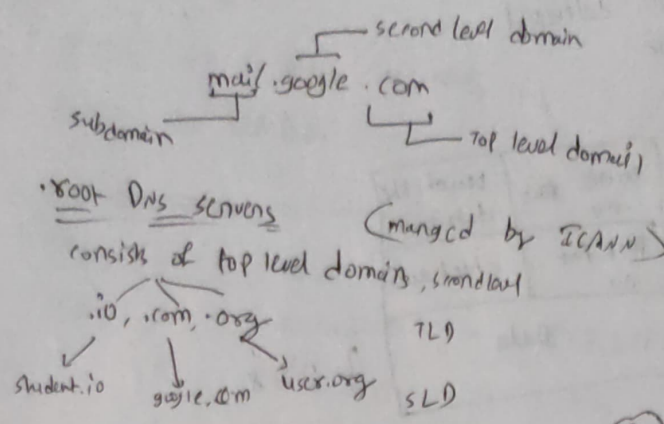 second level domain
mail.google.com
subdomain
Top level domain
.root DNS servers (manged by ICANN)
consists of top level domain, second level
.io, .com, .org TLD
student.io google.com user.org SLD